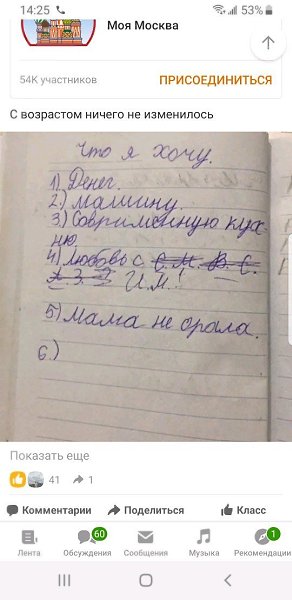 14:25
53%
Моя Москва
54K участников
ПРИСОЕДИНИТЬСЯ
С возрастом ничего не изменилось
Что я хочу.
1) Денег.
2.) Машину.
3.) Совримeнную кух-
ню
4) Любовь с С. М. В. С.
А. З. И.М.!
5) Мама не орала.
6.)
Показать еще
41
1
Комментарии
Поделиться
Класс
60
1
Лента
Обсуждения
Сообщения
Музыка
Рекомендации